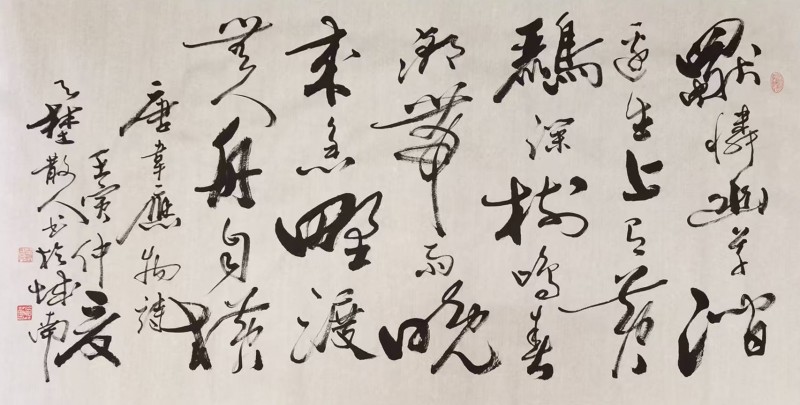 獨憐幽草澗
邊生上有黃
鸝深樹鳴春
潮帶雨晚
來急野渡
無人舟自橫
唐韋應物詩
壬寅仲夏
散人书於城南